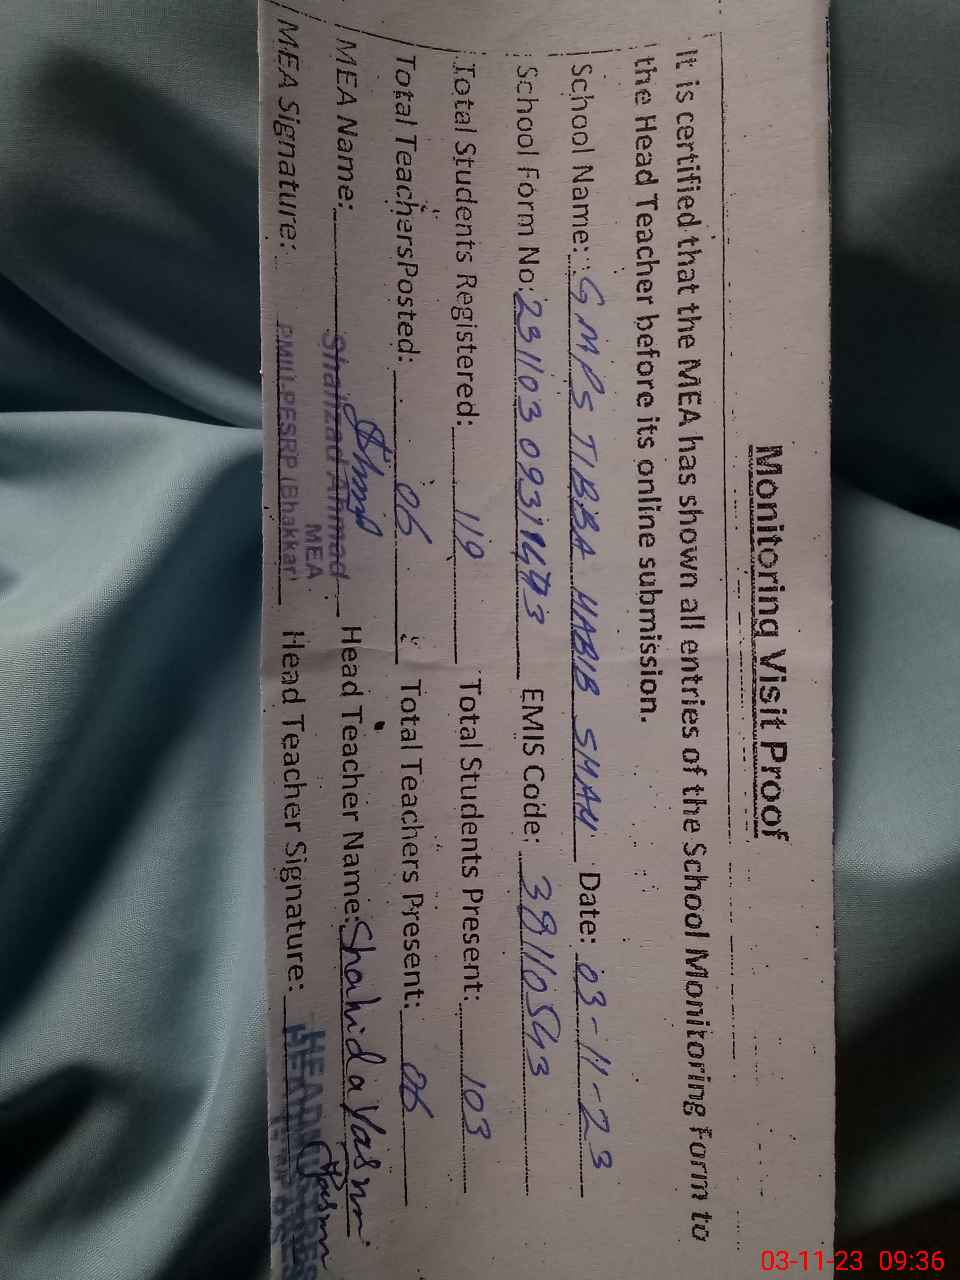 Monitoring Visit Proof
It is certified that the MEA has shown all entries of the School Monitoring Form to
the Head Teacher before its online submission.
School Name: GMPS TIBBA HABIB SHAH Date: 03-11-23
School Form No: 231103 0931 EMIS Code: 38110543
Total Students Registered: 119 Total Students Present: 103
Total Teachers Posted: 06 Total Teachers Present: 06
MEA Name: Shahzad Ahmad Head Teacher Name: Shahida Yasmin
MEA
MEA Signature: PMIU-PESRP (Bhakkar) Head Teacher Signature: HEADMISTRESS
03-11-23 09:36